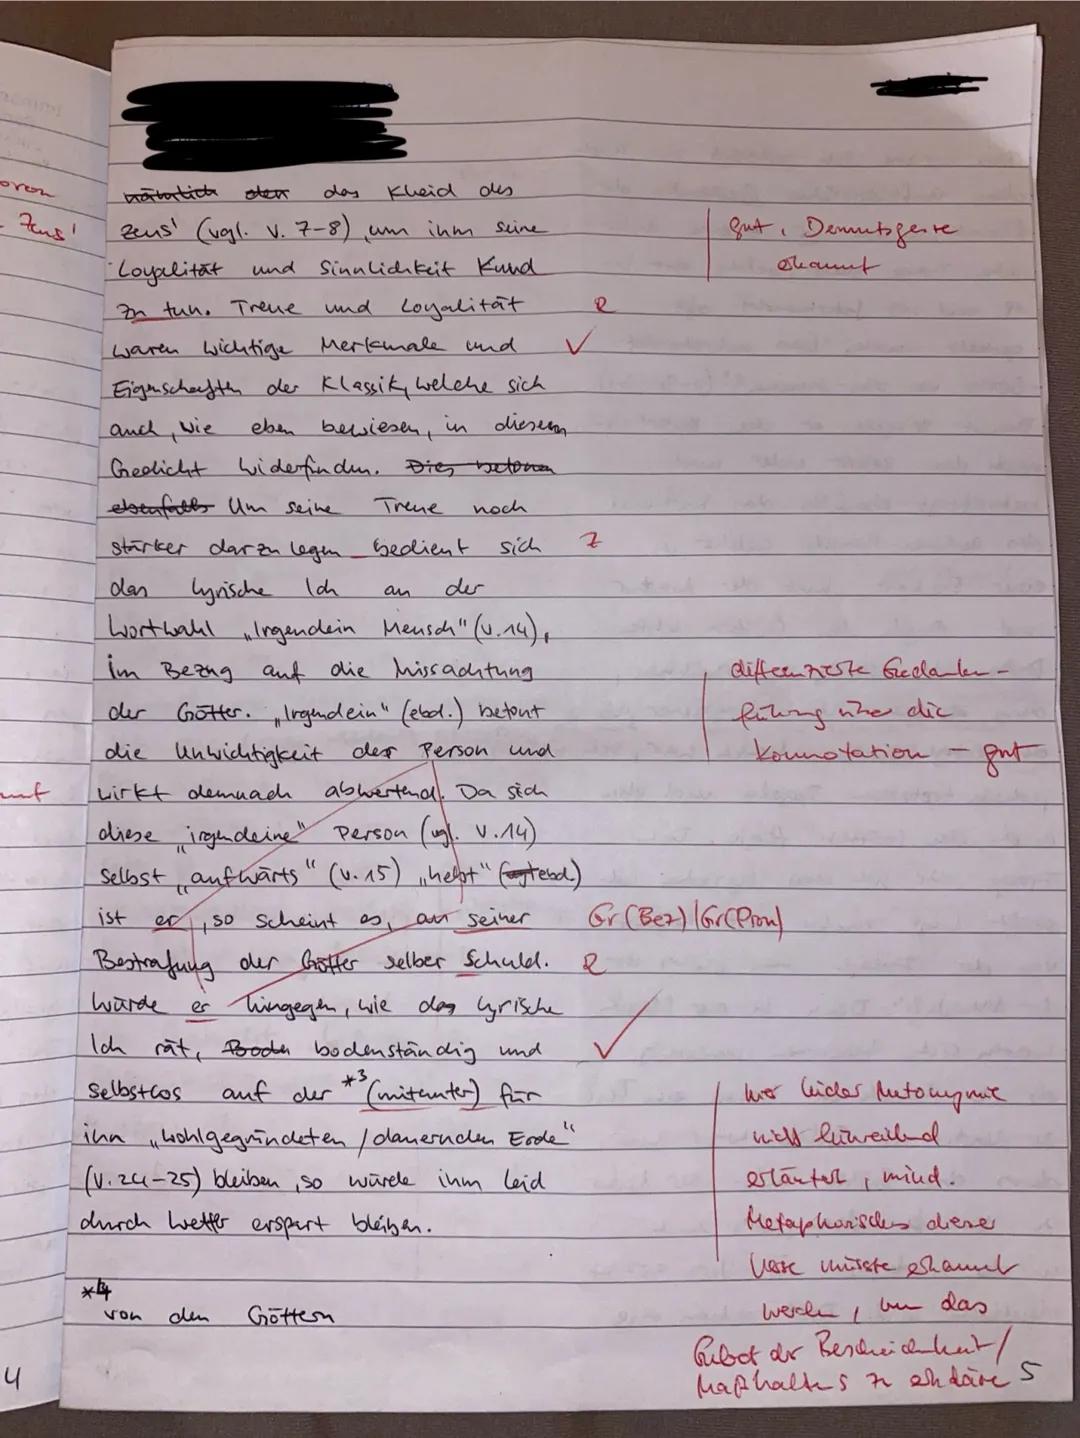 oren
Zeus'
das Kleid des
Zeus' (vgl. V. 7-8), um ihm seine
Loyalität und Sinnlichkeit Kund
zu tun. Treue und Loyalität
waren wichtige Merkmale und
Eigenschaften der Klassik, welche sich
auch, wie eben bewiesen, in diesem
Gedicht widerfinden. Dies betonen
ebenfalls Um seine Treue noch
stärker darzulegen bedient sich
das lyrische Ich an der
Wortwahl „Irgendein Mensch" (V. 14),
im Bezug auf die Missachtung
der Götter. „Irgendein" (ebd.) betont
die Unwichtigkeit der Person und
wirkt demnach abwertend. Da sich
diese „irgendeine" Person (vgl. V. 14)
selbst „aufwärts" (V. 15) „hebt" (ebd.)
ist er, so scheint es, an seiner
Bestrafung der Götter selber Schuld.
Würde er hingegen, wie das lyrische
Ich rät, bodenständig und
selbstlos auf der *3 (mitunter) für
ihn „wohlgegründeten / dauernden Erde"
(V. 24-25) bleiben, so würde ihm Leid
durch Wetter erspart bleiben.
*4
von den Göttern
gut, Demutsgeste
erkannt
R
✓
Z
differenzierte Gedanken-
führung über die
Konnotation - gut
Gr (Bez) | Gr (Pron)
R
✓
hier leider Metonymie
nicht hinreichend
erläutert, mind.
Metaphorisches dieser
Verse müsste erkannt
werden, um das
Gebot der Bescheidenheit /
Maßhaltens zu erklären
4
5